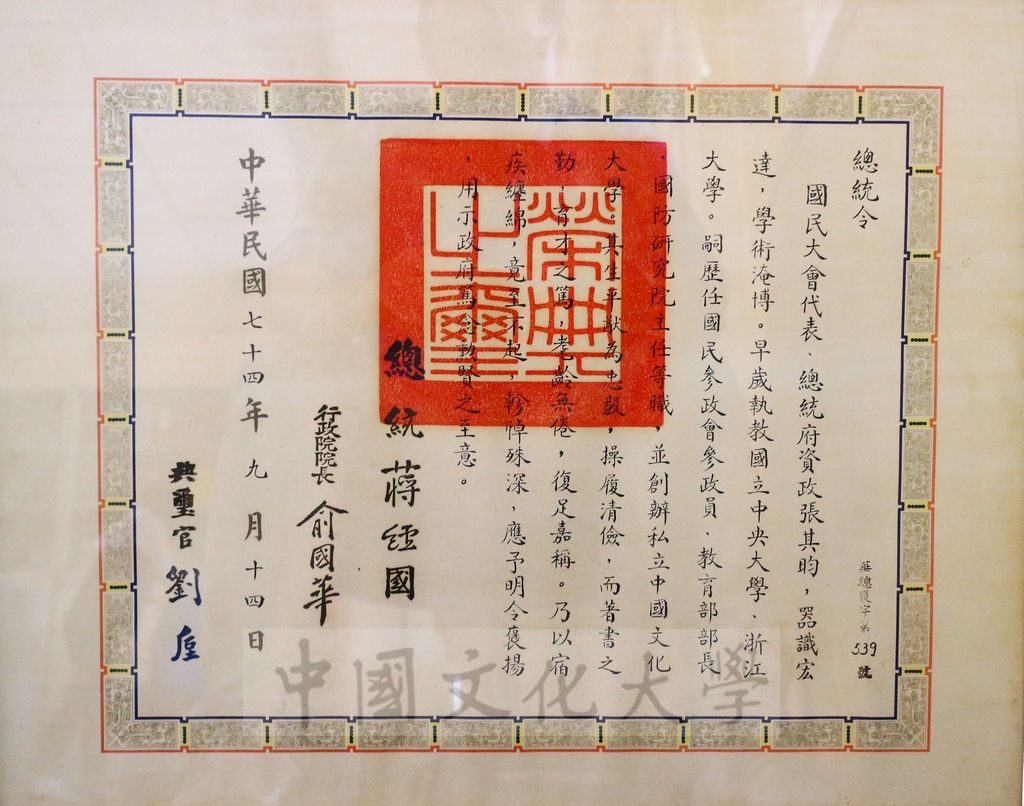 總統令
華總褒字第539號
國民大會代表、總統府資政張其昀，器識宏
達，學術淹博。早歲執教國立中央大學、浙江
大學。嗣歷任國民參政會參政員、教育部部長
、國防研究院主任等職，並創辦私立中國文化
大學。其生平獻為忠毅，操履清儉，而著書之
勤，育才之篤，耄齡無倦，復足嘉稱。乃以宿
疾纏綿，竟至不起，軫悼殊深，應予明令褒揚
，用示政府篤念勳賢之至意。
榮典之璽
總統蔣經國
行政院院長俞國華
中華民國七十四年九月十四日
典璽官劉垕
中國文化大學